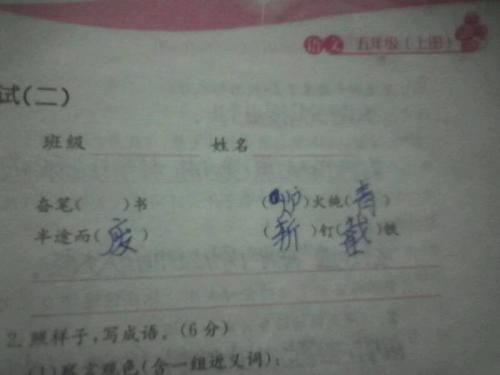 语文 五年级(上册)
试(二)
班级 姓名
奋笔( )书 (炉)火纯(青)
半途而(废) (斩)钉(截)铁
2.照样子,写成语。(6分)
(1)察言观色(含一组近义词):